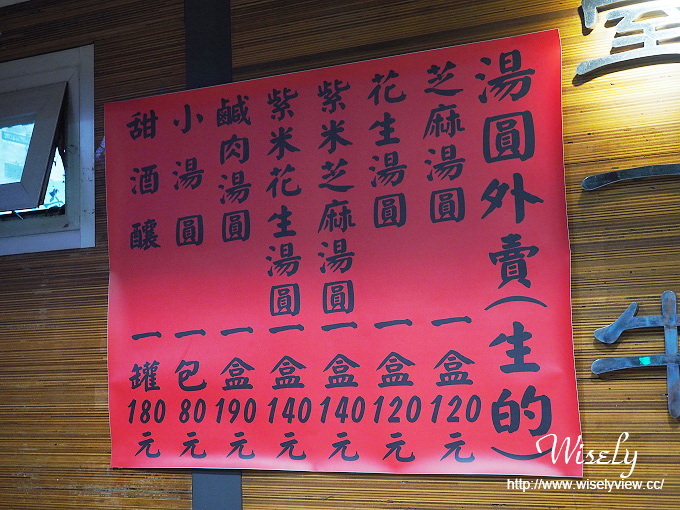 湯圓外賣(生的)
芝麻湯圓一盒120元
花生湯圓一盒120元
紫米芝麻湯圓一盒140元
紫米花生湯圓一盒140元
鹹肉湯圓一盒190元
小湯圓一包80元
甜酒釀一罐180元
Wisely
http://www.wiselyview.cc/